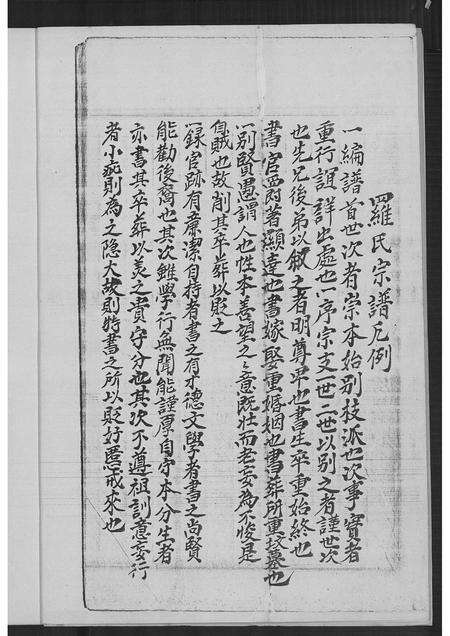 羅氏宗譜凡例
一編譜首世次者崇本始別枝派也次事實者
重行誼詳出處也一序宗支一世二世以別之者謹世次
也先兄後弟以叙之者明尊卑也書生卒重始終也
書官爵著顯達也書嫁娶重婚姻也書葬所重坟墓也
一別賢愚謂人也性本善望之之意既壯而老妄為不悛是
自賊也故削其卒葬以貶之
一録官跡有廉潔自持者書之有才德文學者書之尚賢
能勸後裔也其次雖學行無聞能謹厚自守本分生者
亦書其卒葬以美之貴守分也其次不遵祖訓意妄行
者小疵則為之隐大故則特書之所以貶奸慝戒來也